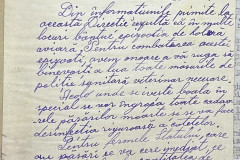 Din informațiunile primite la
această Direcție rezultă că în multe
locuri bântue epizootia de holera
aviară. Pentru combaterea acestei
epizootii, avem onoare a vă ruga să
binevoiți a lua toate măsurile de
poliție sanitară veterinar necesare.
Acolo unde se ivește boala în
special se vor îngropa toate cadav-
rele păsărilor moarte și se va face
desinfecția riguroasă a cotețelor.
Pentru fermele Statului, care
au păsări se va cere imediat, je